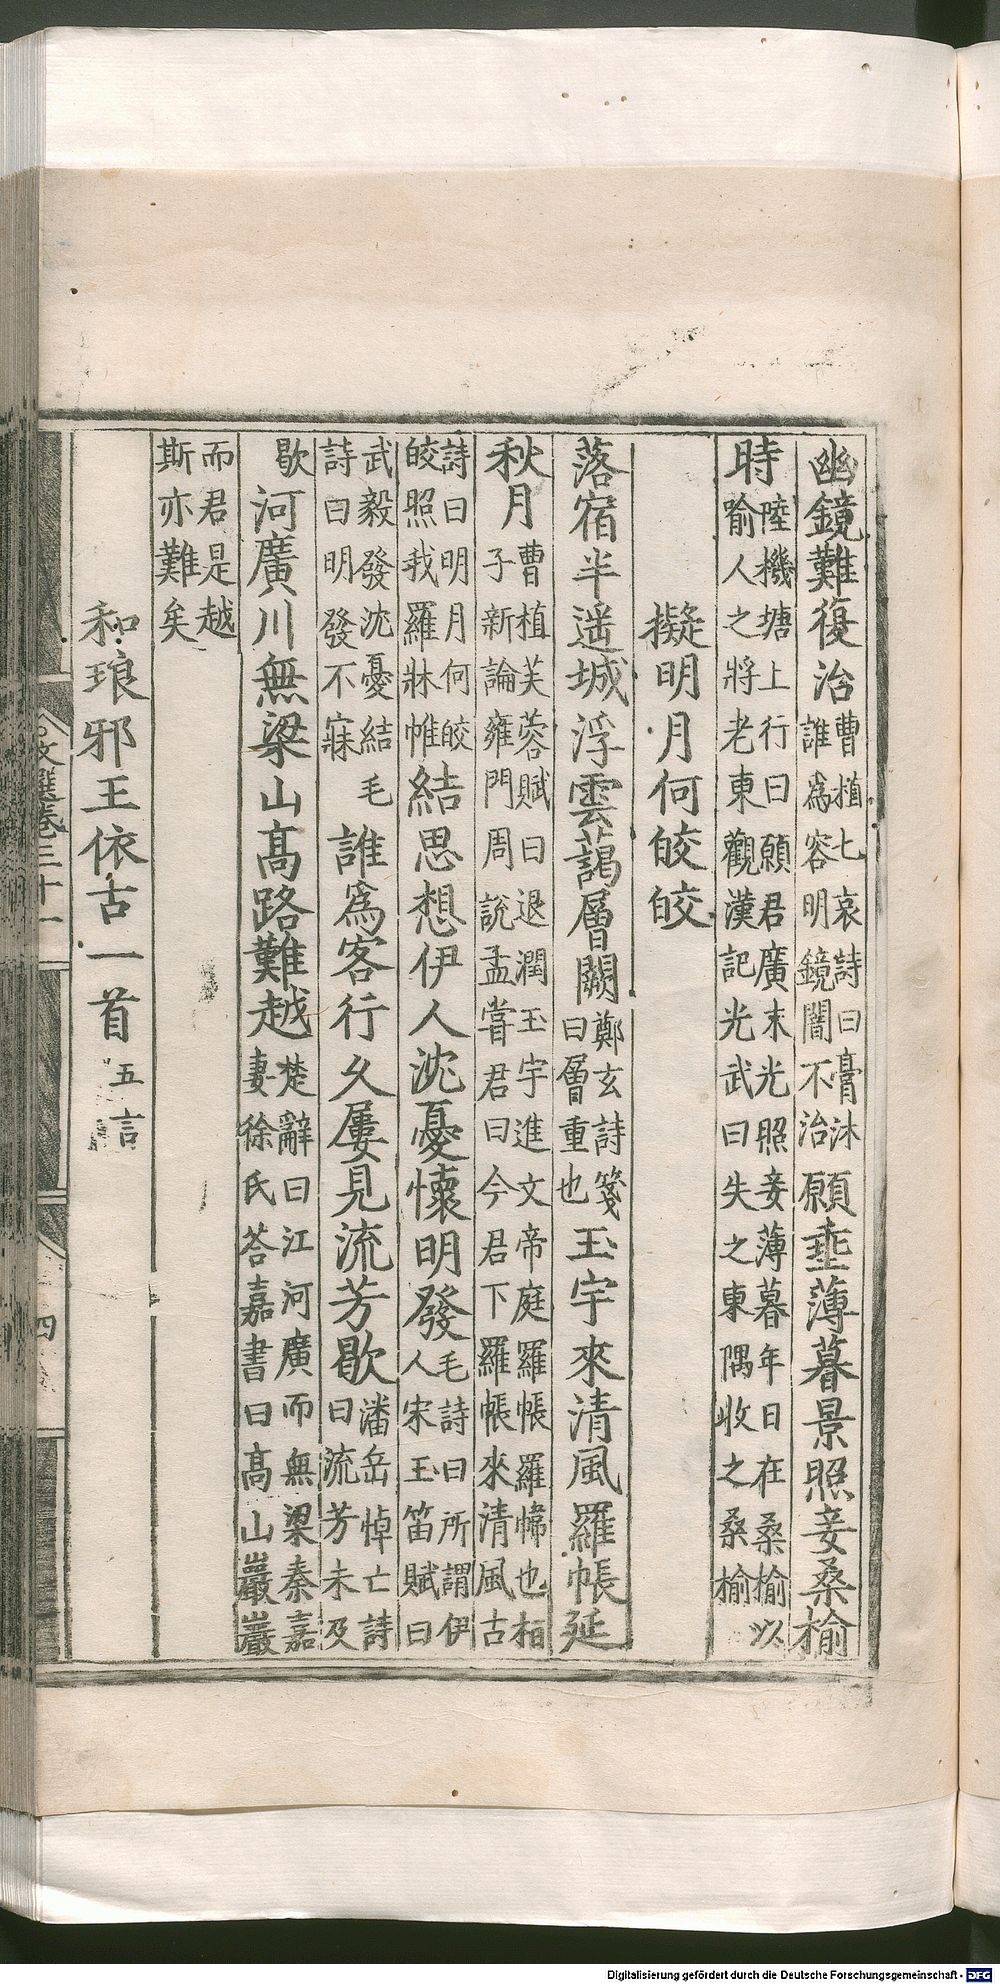 幽鏡難復治曹植七哀詩曰膏沐誰爲容明鏡闇不治願垂薄暮景照妾桑榆
時陸機塘上行曰願君廣末光照妾薄暮年日在桑榆以喻人之將老東觀漢記光武曰失之東隅收之桑榆
擬明月何皎皎
落宿半遥城浮雲藹層闕鄭玄詩箋曰層重也玉宇來清風羅帳延
秋月曹植芙蓉賦曰退潤玉宇進文帝庭羅帳羅幃也桓子新論雍門周説孟嘗君曰今君下羅帳來清風古
詩曰明月何皎皎照我羅牀帷結思想伊人沈憂懷明發毛詩曰所謂伊人宋玉笛賦曰
武毅發沈憂結毛詩曰明發不寐誰爲客行久屢見流芳歇潘岳悼亡詩曰流芳未及
歇河廣川無梁山髙路難越楚辭曰江河廣而無梁秦嘉妻徐氏荅嘉書曰髙山巖巖
而君是越斯亦難矣
和琅邪王依古一首五言
文選卷三十一
四
Digitalisierung gefördert durch die Deutsche Forschungsgemeinschaft - DFG